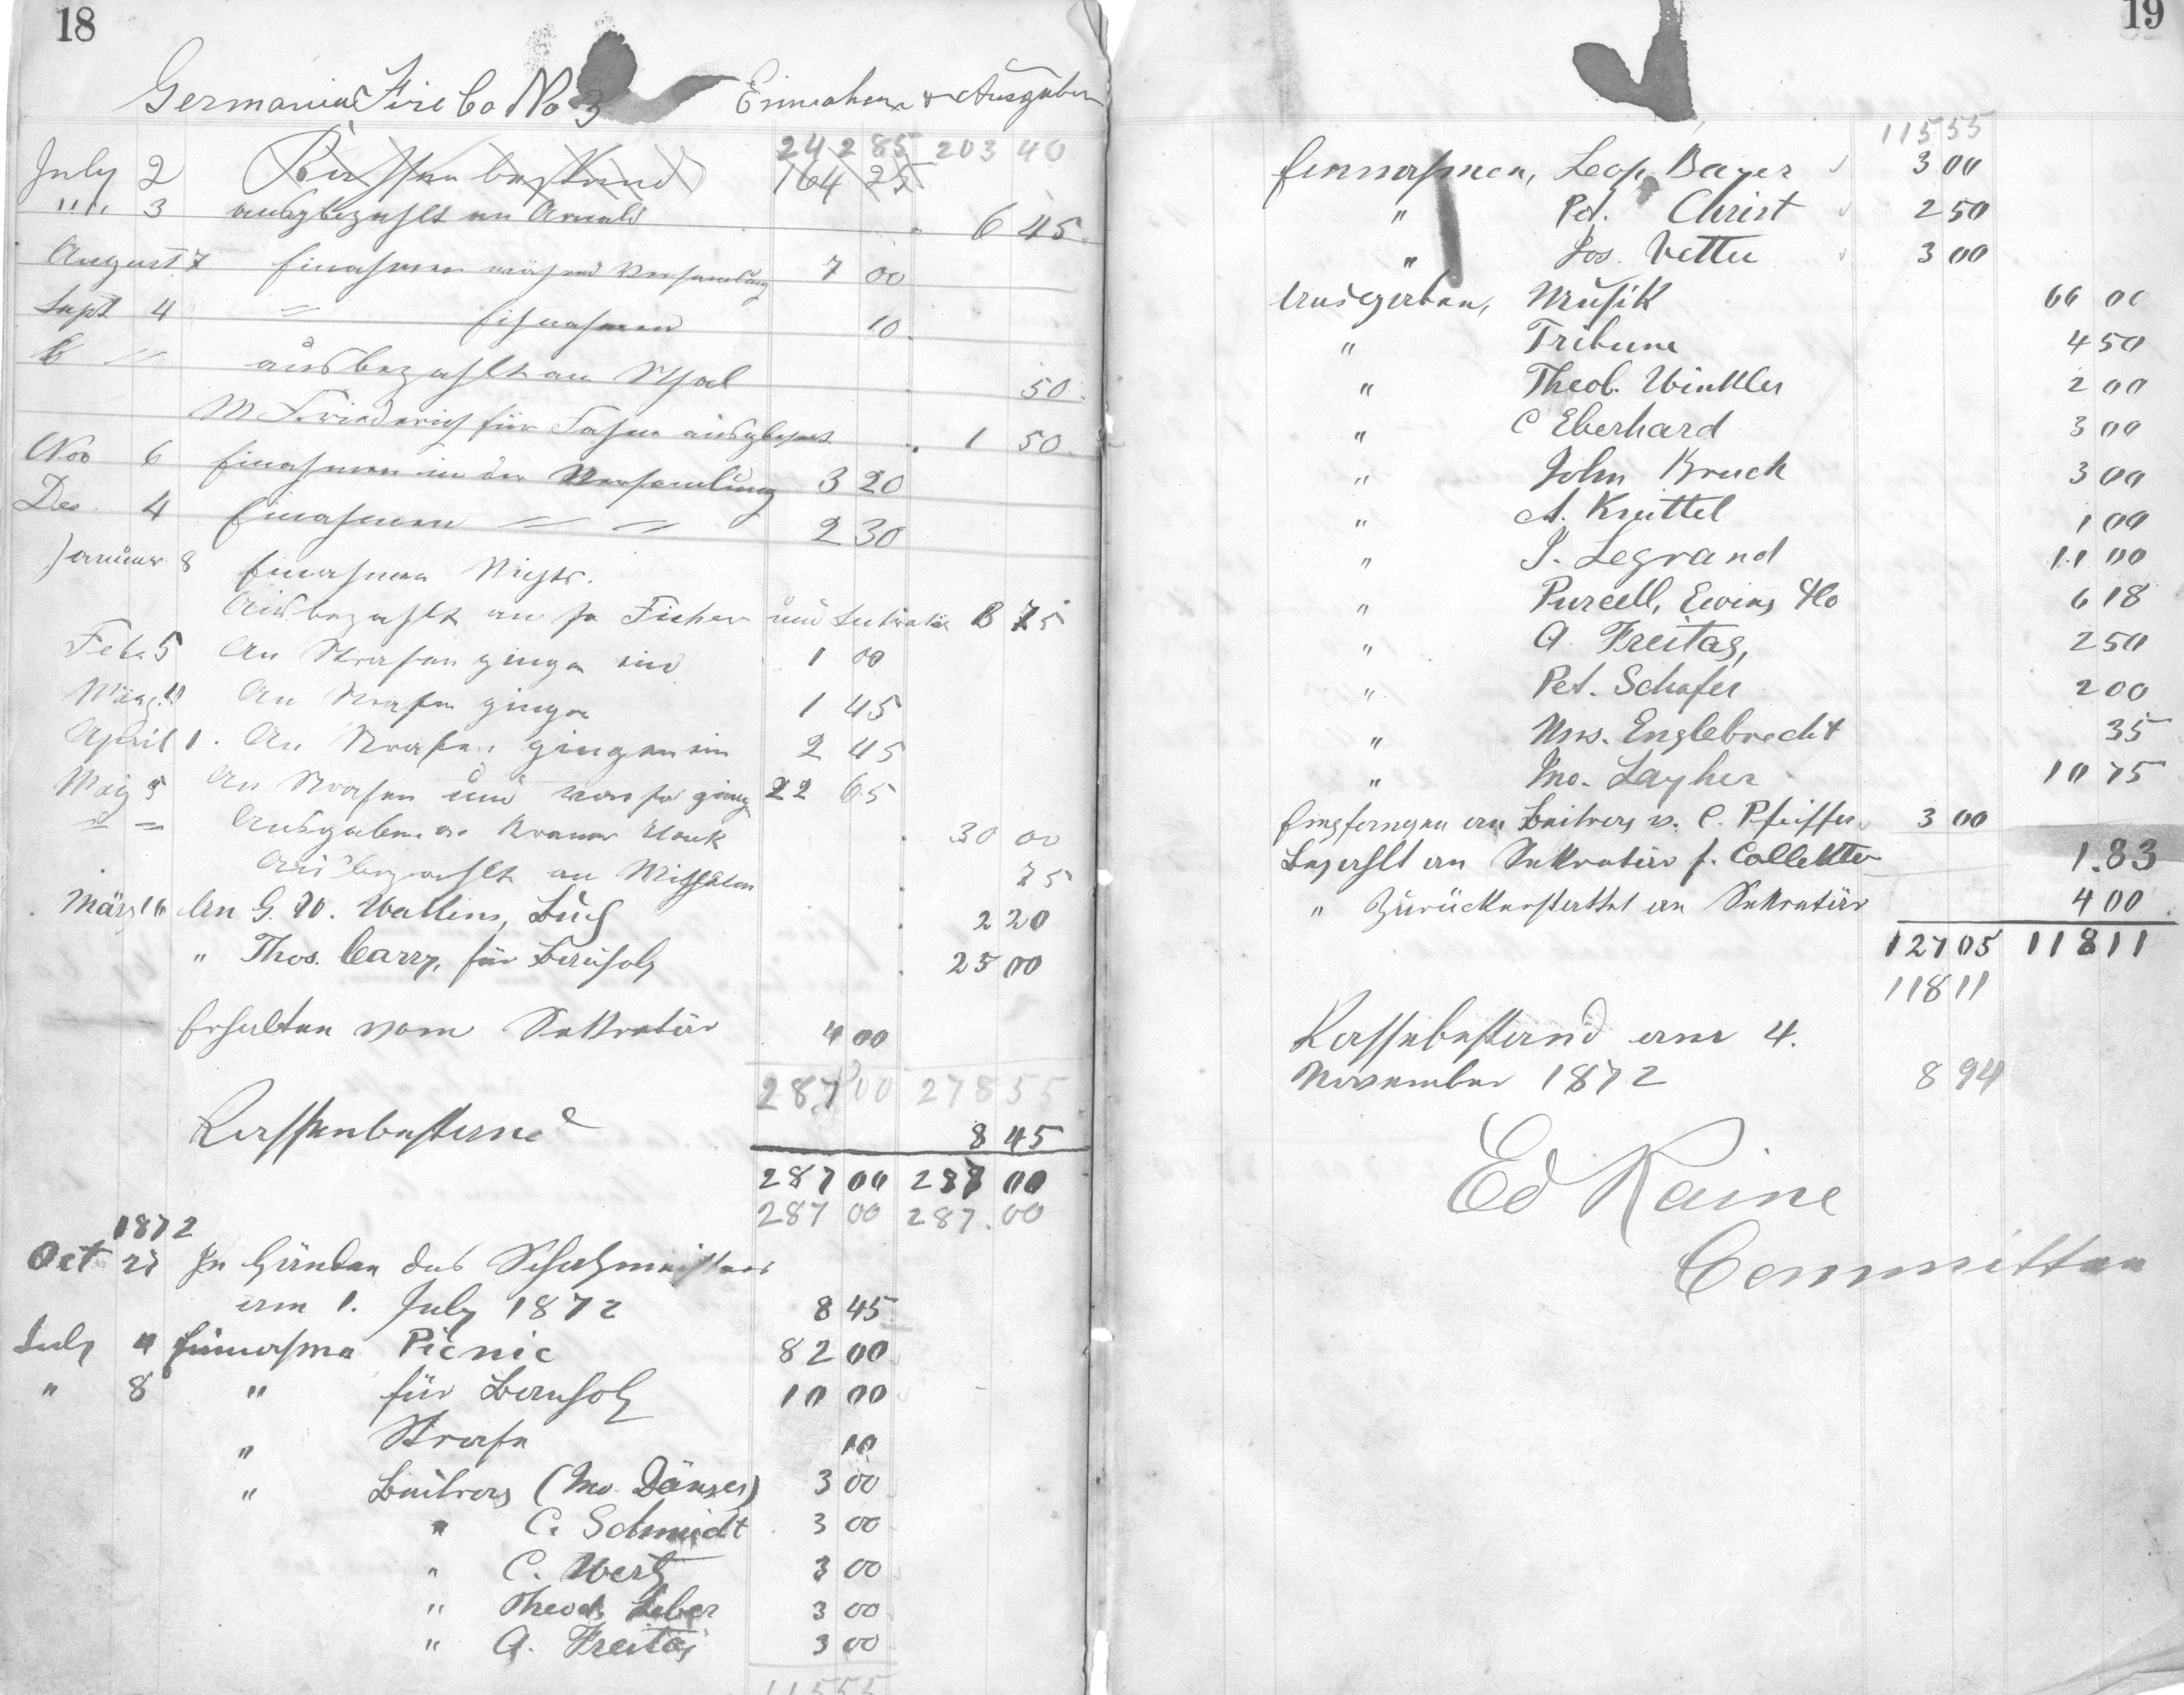 18
Germania Fire Co No 3 Einnahme & Ausgaben
242 85 203 40
July 2 Kassenbestand 164 25
" " 3 ausbezahlt an Arnold 6 45
August 7 Einahmen während Versamlung 7 00
Sept 4 " Einahmen 10
6 " ausbezahlt an 50
M Friederich für Fahne ausgebessert 1 50
Nov 6 Einahmen in der Versamlung 3 20
Dec. 4 Einahmen " " 2 30
Januar 8 Einahmen Nichts.
Ausbezahlt an Fischer und Sekretär 8 75
Feb. 5 An Strafen gingen ein 1 00
März An Strafen gingen 1 45
April 1. An Strafen gingen ein 2 45
May 5 An Strafen und gingen 22 65
" " Ausgaben an 30 00
Ausbezahlt an 75
März 16 An G. W. Wattins, Buch 2 20
" Thos. Carry, für Bauholz 25 00
Erhalten vom Sekretär 4 00
287 00 278 55
Kassenbestand 8 45
287 00 287 00
287 00 287.00
1872
Oct 27 In Händen des Schatzmeisters
am 1. July 1872 8 45
July 4 Einnahme Picnic 82 00
" 8 " für Bauholz 10 00
" Strafe 10
" Beitrag (Jno. Dänzer) 3 00
" C. Schmidt 3 00
" C. Wertz 3 00
" Theod. Leber 3 00
" A. Freitag 3 00
115 55
19
115 55
Einnahmen, Leop. Bayer 3 00
" Pet. Christ 2 50
" Jos. Vetter 3 00
Ausgaben, Musik 66 00
" Tribune 4 50
" Theob. Winkler 2 00
" C Eberhard 3 00
" John Kruck 3 00
" A. Knittel 1 00
" J. Legrand 11 00
" Purcell, Ewing & Co 6 18
" A. Freitag, 2 50
" Pet. Schafer 2 00
" Mrs. Englebrecht 35
" Jno. Layher 10 75
Eingegangen an Beitrag v. C. Pfeiffer 3 00
Bezahlt an Sekretär f. Collekten 1.83
" Zurückerstattet an Sekretär 4 00
127 05 118 11
118 11
Kassebestand am 4.
November 1872 8 94
Ed Raine
Committee